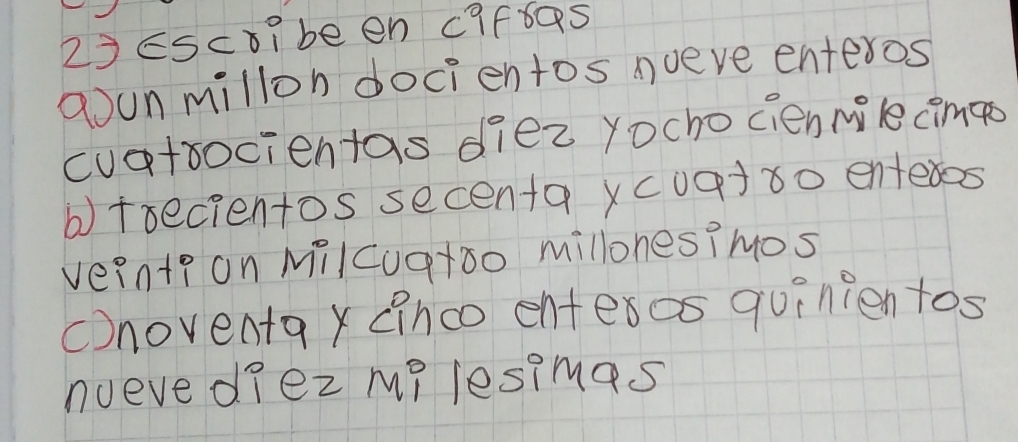 2) Escribe en cifras
a) un millon docientos nueve enteros
cuatrocientas diez y ocho cienmilecimas
b) trecientos secenta y cuatro enteros
veinti un mil cuatro millonesimos
c) noventa y cinco enteros quinientos
nueve diez milesimas